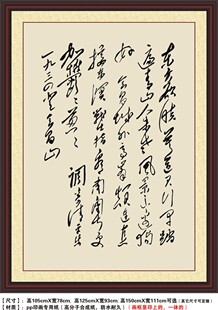 东方欲晓莫道君行早踏
遍青山人未老风景这边独
好会昌城外高峰颠连直
接东溟战士指看南粤更
加郁郁葱葱
调寄清平乐
一九三四年
【尺寸】：高105cmX宽78cm、高125cmX宽93cm、高150cmX宽111cm可选(其它尺寸可定制)
【材质】：pp印画专用纸(高分子合成纸、防水耐久)(画框是印上的、一体的)